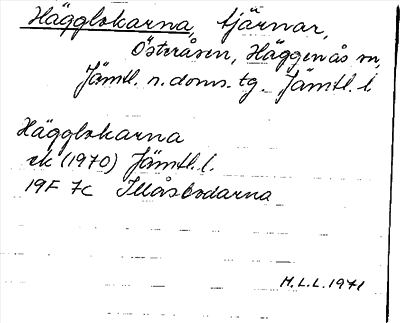 Hägglokarna, tjärnar,
Österåsen, Häggenås sn,
Jämtl. n. doms. tg. Jämtl. l
Hägglokarna
ek (1970) Jämtl. l.
19F 7c Illåsbodarna
H.L.L. 1971